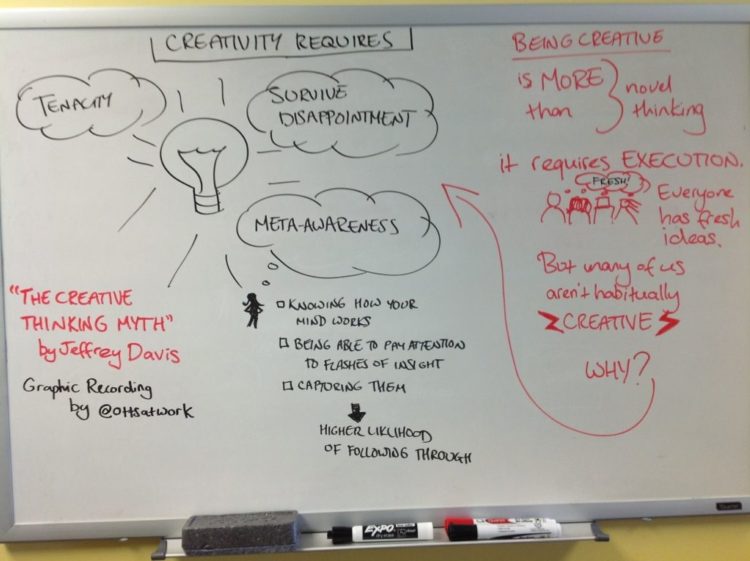 CREATIVITY REQUIRES
TENACITY
SURVIVE
DISAPPOINTMENT
META-AWARENESS
KNOWING HOW YOUR
MIND WORKS
BEING ABLE TO PAY ATTENTION
TO FLASHES OF INSIGHT
CAPTURING THEM
HIGHER LIKLIHOOD
OF FOLLOWING THROUGH
"THE CREATIVE
THINKING MYTH"
by Jeffrey Davis
Graphic Recording
by @ottsatwork
BEING CREATIVE
is MORE
than
novel
thinking
it requires EXECUTION.
FRESH!
Everyone
has fresh
ideas.
But many of us
aren't habitually
CREATIVE
WHY?
EXPO